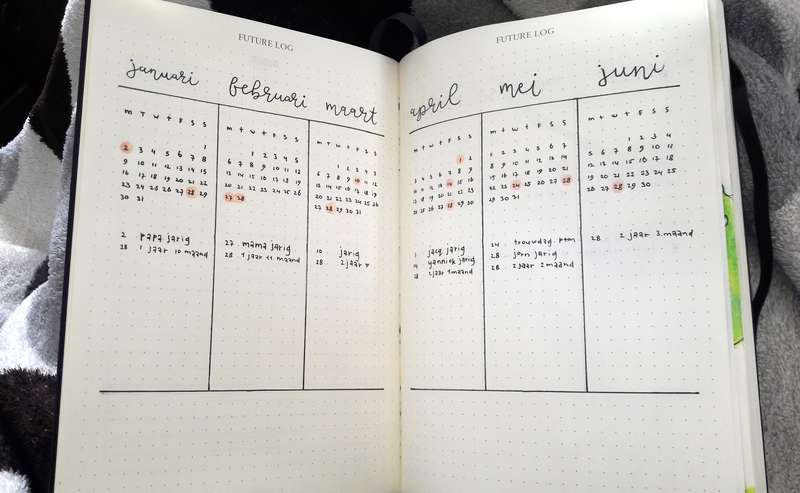 FUTURE LOG
januari
m T w t F s s
1
2 3 4 5 6 7 8
9 10 11 12 13 14 15
16 17 18 19 20 21 22
23 24 25 26 27 28 29
30 31
2 papa jarig
28 1 jaar 10 maand
februari
m t w t F s s
1 2 3 4 5
6 7 8 9 10 11 12
13 14 15 16 17 18 19
20 21 22 23 24 25 26
27 28
27 mama jarig
28 1 jaar 11 maand
maart
m t w t F s s
1 2 3 4 5
6 7 8 9 10 11 12
13 14 15 16 17 18 19
20 21 22 23 24 25 26
27 28 29 30 31
10 jarig
28 2 jaar
FUTURE LOG
april
m t w t F s s
1 2
3 4 5 6 7 8 9
10 11 12 13 14 15 16
17 18 19 20 21 22 23
24 25 26 27 28 29 30
1 jacq jarig
14 yannick jarig
28 2 jaar 1 maand
mei
m t w t F s s
1 2 3 4 5 6 7
8 9 10 11 12 13 14
15 16 17 18 19 20 21
22 23 24 25 26 27 28
29 30 31
24 trouwdag
28 jorn jarig
28 2 jaar 2 maand
juni
m t w t F s s
1 2 3 4
5 6 7 8 9 10 11
12 13 14 15 16 17 18
19 20 21 22 23 24 25
26 27 28 29 30
28 2 jaar 3 maand